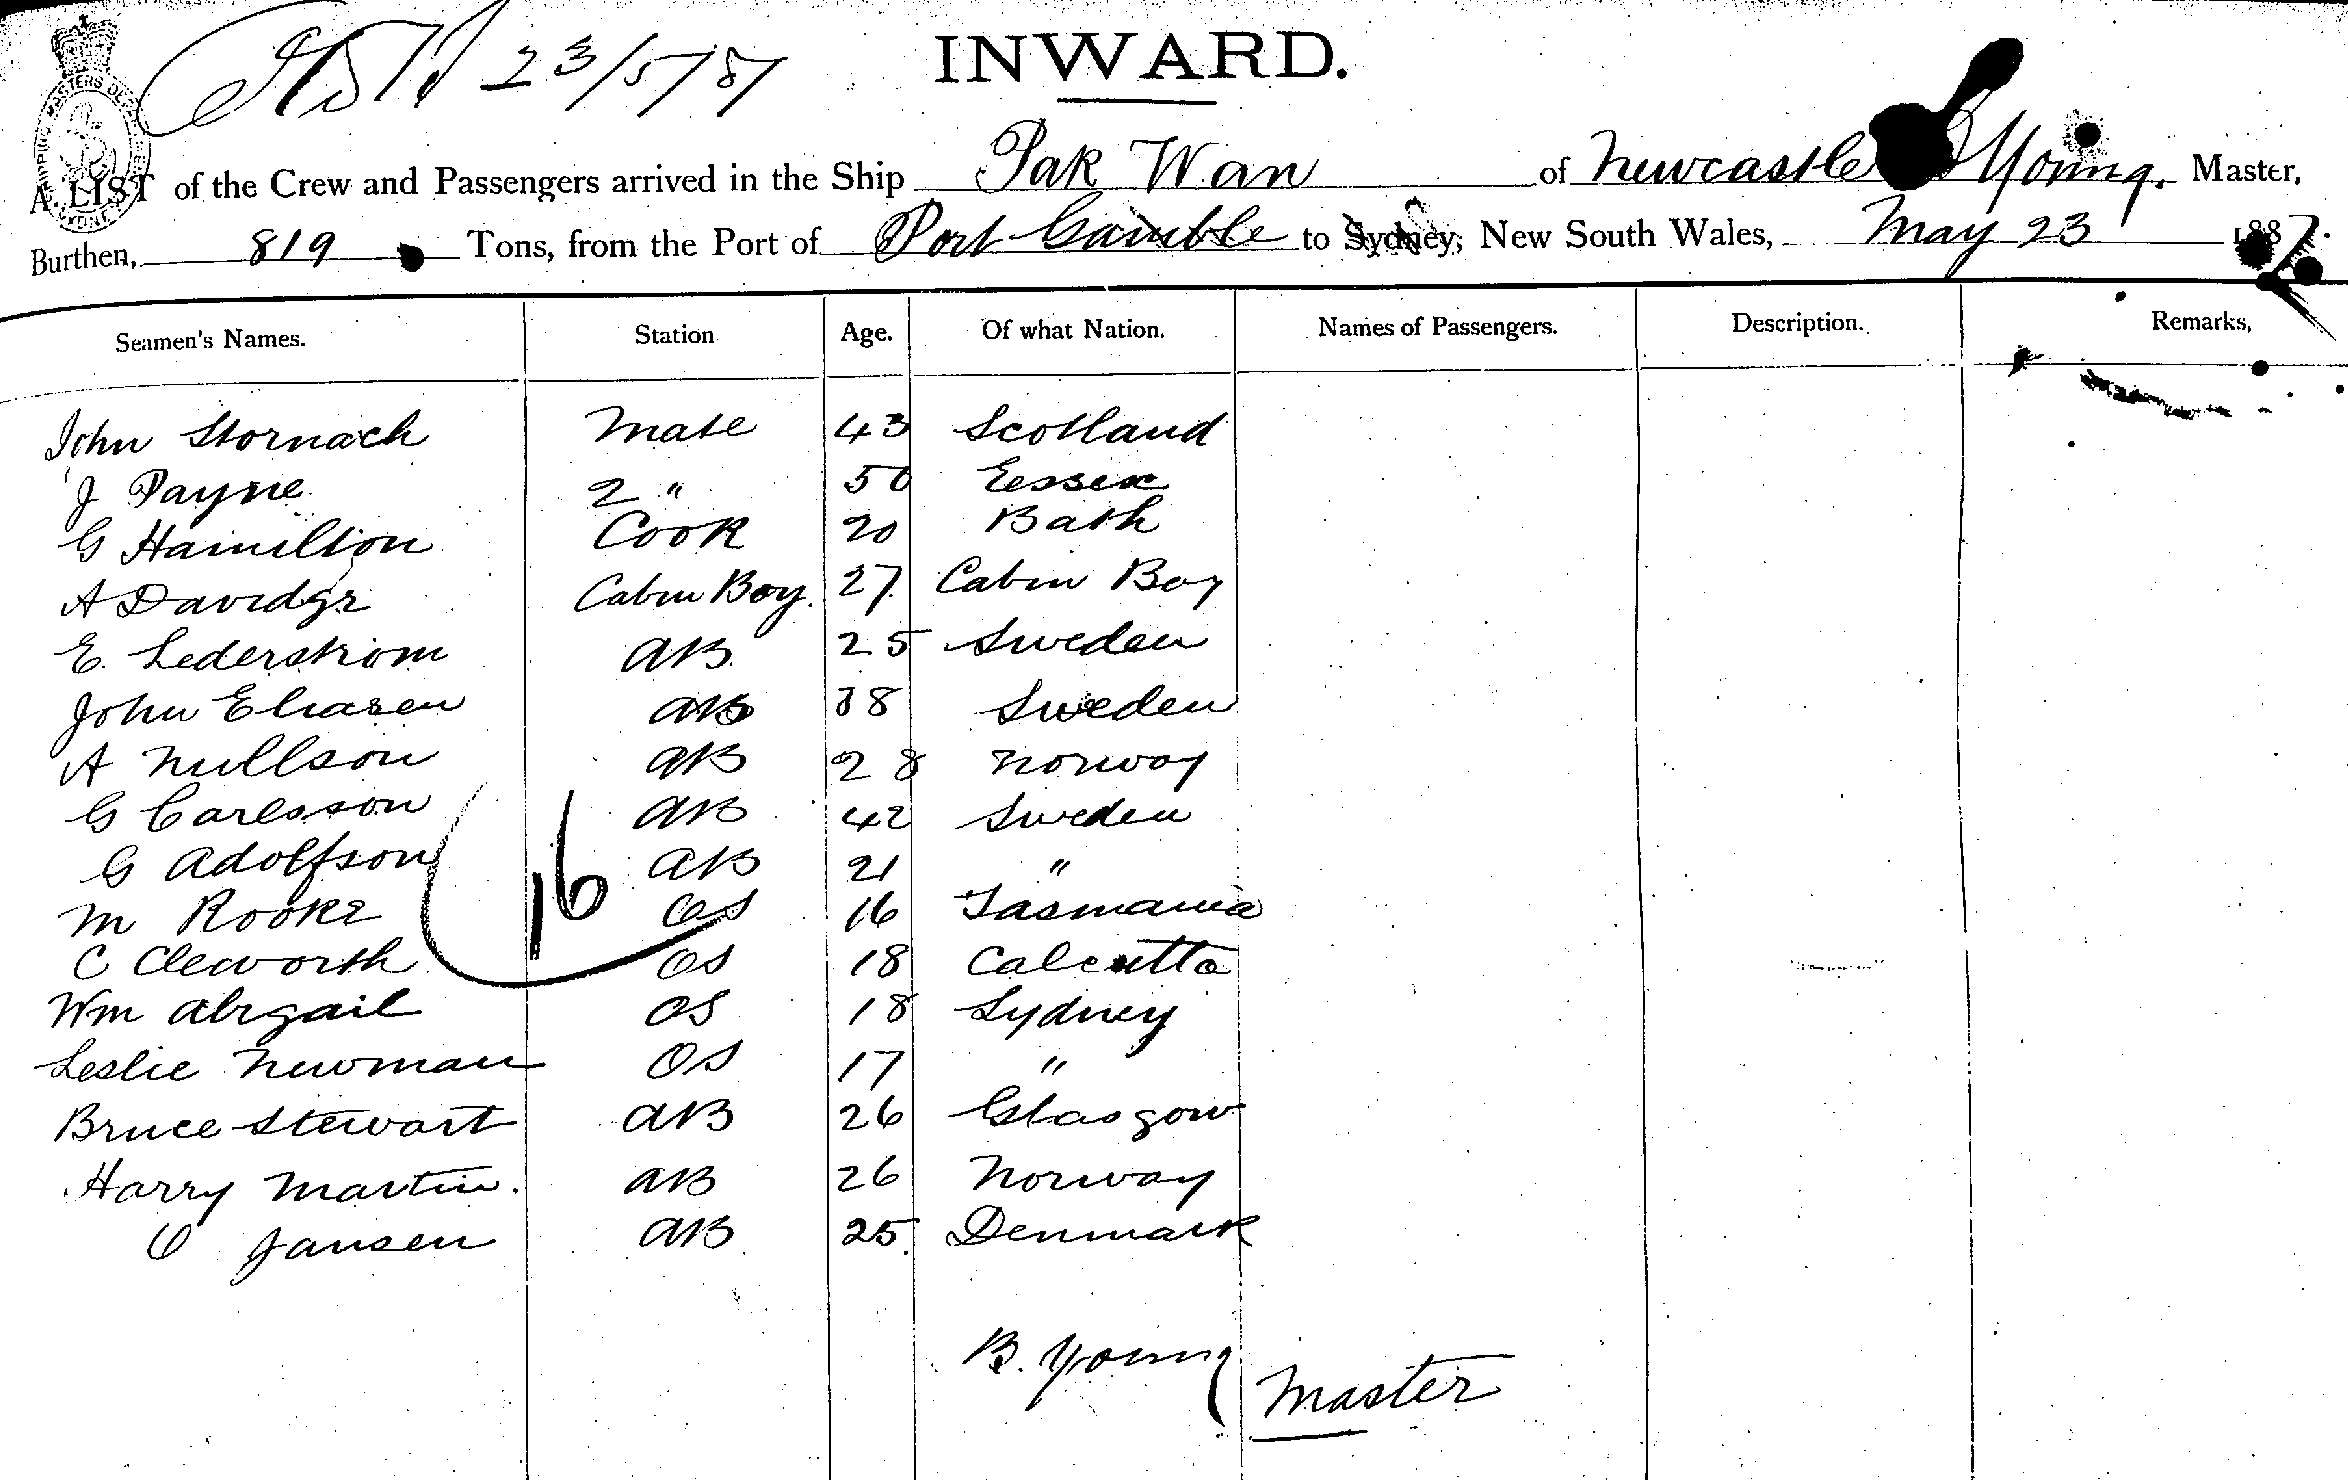 23/5/87
INWARD.
A LIST of the Crew and Passengers arrived in the Ship Pak Wan of Newcastle Young, Master,
Burthen, 819 Tons, from the Port of Port Gamble to Sydney, New South Wales, May 23 1887.
Seamen's Names. Station Age. Of what Nation. Names of Passengers. Description. Remarks,
John Stornach Mate 43 Scotland
J Payne 2 " 50 Essex
G Hamilton Cook 20 Bath
A Cabin Boy. 27 Cabin Boy
E. Lederstrom AB 25 Sweden
John Eliasen AB 38 Sweden
A Nullson AB 28 Norway
G Carlsson AB 42 Sweden
G Adolfson AB 21 "
M Rooke OS 16 Tasmania
16
C Cleworth OS 18 Calcutta
Wm Abigail OS 18 Sydney
Leslie Newman OS 17 "
Bruce Stewart AB 26 Glasgow
Harry Martin. AB 26 Norway
O Jansen AB 25. Denmark
B. Young
Master